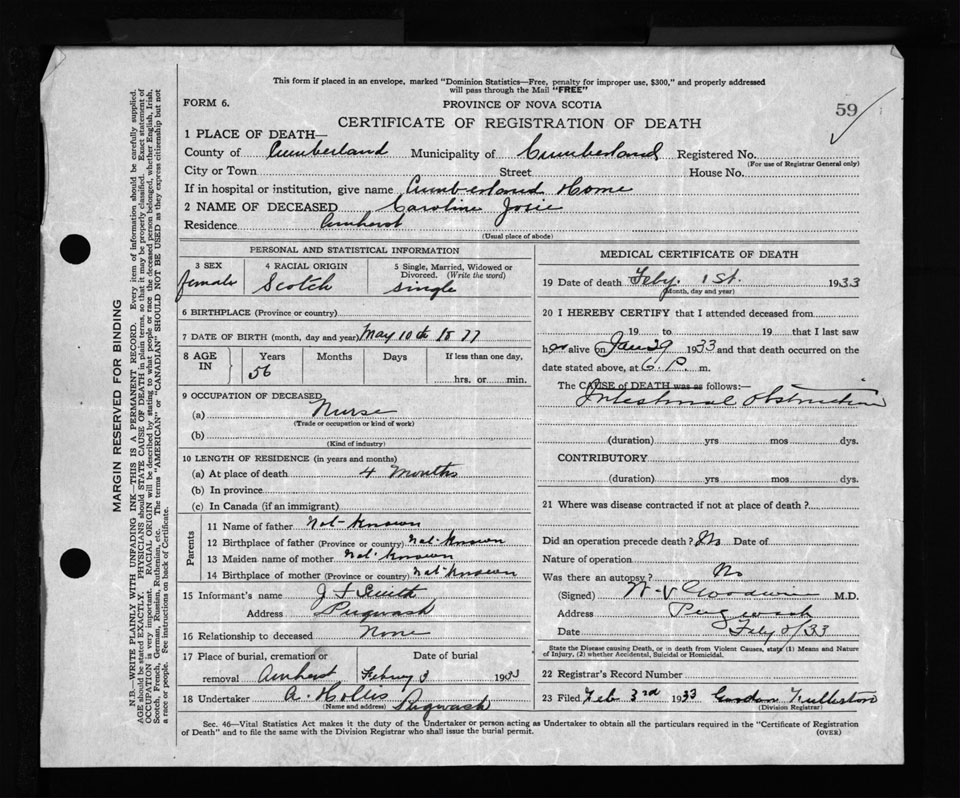 This form if placed in an envelope, marked "Dominion Statistics—Free, penalty for improper use, $300," and properly addressed
will pass through the Mail "FREE"
FORM 6.
PROVINCE OF NOVA SCOTIA
59
CERTIFICATE OF REGISTRATION OF DEATH
1 PLACE OF DEATH—
County of Cumberland Municipality of Cumberland Registered No.
(For use of Registrar General only)
City or Town Street House No.
If in hospital or institution, give name Cumberland Home
2 NAME OF DECEASED Caroline Josie
Residence Amherst
(Usual place of abode)
PERSONAL AND STATISTICAL INFORMATION
3 SEX female
4 RACIAL ORIGIN Scotch
5 Single, Married, Widowed or Divorced. (Write the word) Single
6 BIRTHPLACE (Province or country)
7 DATE OF BIRTH (month, day and year) May 10th 1877
8 AGE IN Years 56 Months Days If less than one day, hrs. or min.
9 OCCUPATION OF DECEASED
(a) Nurse
(Trade or occupation or kind of work)
(b)
(Kind of industry)
10 LENGTH OF RESIDENCE (in years and months)
(a) At place of death 4 Months
(b) In province
(c) In Canada (if an immigrant)
Parents
11 Name of father Not Known
12 Birthplace of father (Province or country) Not Known
13 Maiden name of mother Not Known
14 Birthplace of mother (Province or country) Not Known
15 Informant's name J Smith
Address Pugwash
16 Relationship to deceased None
17 Place of burial, cremation or Date of burial
removal Amherst Feby 3 1933
18 Undertaker A. Hollis Pugwash
(Name and address)
MEDICAL CERTIFICATE OF DEATH
19 Date of death Feby. 1st. 1933
(Month, day and year)
20 I HEREBY CERTIFY that I attended deceased from
19 to 19 that I last saw
her alive on Jan 29 1933 and that death occurred on the
date stated above, at 6 P. m.
The CAUSE of DEATH was as follows:—
Intestinal Obstruction
(duration) yrs mos dys.
CONTRIBUTORY
(duration) yrs mos dys.
21 Where was disease contracted if not at place of death?
Did an operation precede death? No Date of
Nature of operation
Was there an autopsy? No
(Signed) W. V Goodwin M.D.
Address Pugwash
Date Feby 2/33
State the Disease causing Death, or in death from Violent Causes, state (1) Means and
Nature of Injury, (2) whether Accidental, Suicidal or Homicidal.
22 Registrar's Record Number
23 Filed Feb 3rd 1933 Gordon Fullerton
(Division Registrar)
Sec. 46—Vital Statistics Act makes it the duty of the Undertaker or person acting as Undertaker to obtain all the particulars required in the "Certificate of Registration
of Death" and to file the same with the Division Registrar who shall issue the burial permit.
(OVER)
MARGIN RESERVED FOR BINDING
N.B.—WRITE PLAINLY WITH UNFADING INK—THIS IS A PERMANENT RECORD. Every item of information should be carefully supplied.
AGE should be stated EXACTLY. PHYSICIANS should STATE CAUSE OF DEATH in plain terms, so that it may be properly classified. Exact statement of
OCCUPATION is very important. RACIAL ORIGIN will be described by stating to what people or race the deceased person belonged, whether English, Irish,
Scotch, French, German, Russian, Ruthenian, etc. The terms "AMERICAN" or "CANADIAN" SHOULD NOT BE USED as they express citizenship but not
a race or people. See instructions on back of Certificate.